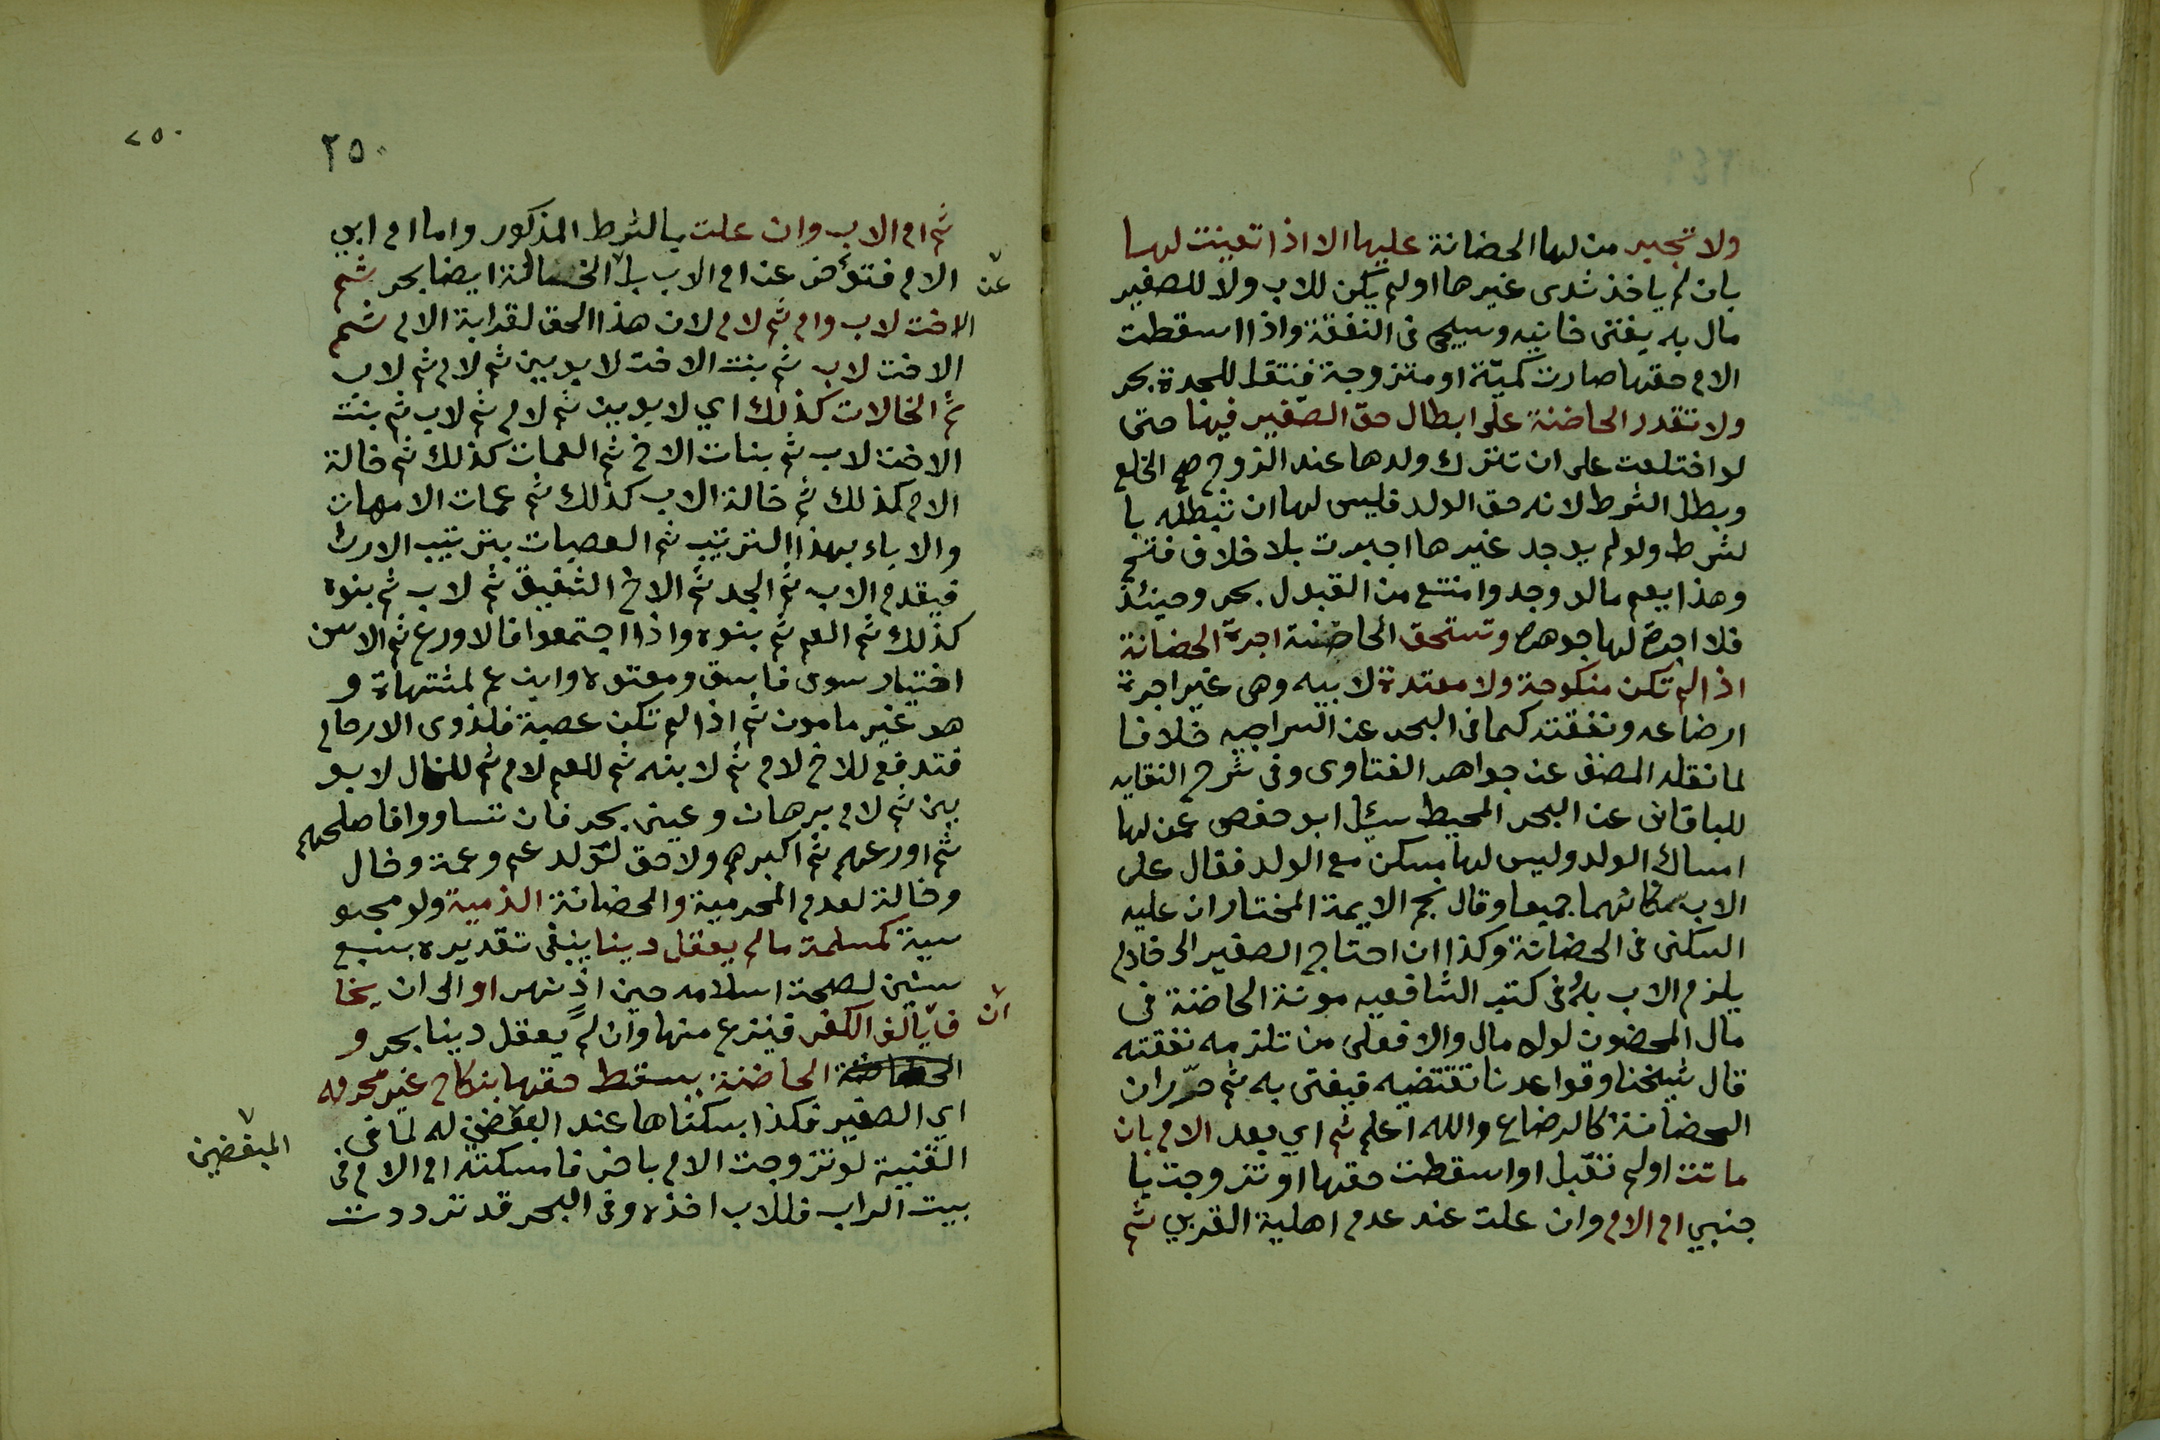 ولا تجبر من لها الحضانة عليها الا اذا تعينت لها
بان لم ياخذ ثدى غيرها او لم يكن للاب ولا للصغير
مال به يفتى خانيه وسيجى فى النفقة واذا اسقطت
الام حقها صارت كميتة او متزوجة فتنتقل للجدة بحر
ولا تقدر الحاضنة على ابطال حق الصغير فيها حتى
لو اختلعت على ان تترك ولدها عند الزوج صح الخلع
وبطل الشرط لانه حق الولد فليس لها ان تبطله با
لشرط ولو لم يوجد غيرها اجبرت بلا خلاف فتح
وهذا يعم ما لو وجد وامتنع من القبول بحر وحينئذ
فلا اجرة لها جوهرة وتستحق الحاضنة اجرة الحضانة
اذا لم تكن منكوحة ولا معتدة لابيه وهى غير اجرة
ارضاعه ونفقته كما فى البحر عن السراجيه خلافا
لما نقله المصنف عن جواهر الفتاوى وفى شرح النقايه
للباقانى عن البحر المحيط سئل ابو حفص عمن لها
امساك الولد وليس لها مسكن مع الولد فقال على
الاب سكناهما جميعا وقال نجم الايمة المختار ان عليه
السكنى فى الحضانة وكذا ان احتاج الصغير الى خادم
يلزم الاب به وفى كتب الشافعيه مونة الحاضنة فى
مال المحضون لو له مال والا فعلى من تلزمه نفقته
قال شيخنا وقواعدنا تقتضيه فيفتى به ثم حرر ان
الحضانة كالرضاع والله اعلم ثم اي بعد الام بان
ماتت او لم تقبل او اسقطت حقها او تزوجت با
جنبي ام الام وان علت عند عدم اهلية القربي ثم
٢٥٠
٢٥٠
ثم ام الاب وان علت بالشرط المذكور واما ام ابي
الام فتؤخر عن ام الاب بل الخالة ايضا بحر ثم
عن
الاخت لاب وام ثم لام لان هذا الحق لقرابة الام ثم
الاخت لاب ثم بنت الاخت لابوين ثم لام ثم لاب
ثم الخالات كذلك اي لابوين ثم لام ثم لاب ثم بنت
الاخت لاب ثم بنات الاخ ثم العمات كذلك ثم خالة
الام كذلك ثم خالة الاب كذلك ثم عمات الامهات
والاباء بهذا الترتيب ثم العصبات بترتيب الارث
فيقدم الاب ثم الجد ثم الاخ الشقيق ثم لاب ثم بنوه
كذلك ثم العم ثم بنوه واذا اجتمعوا فالاورع ثم الاسن
اختيار سوى فاسق ومعتوه وابن عم لمشتهاة و
هو غير مامون ثم اذا لم تكن عصبة فلذوى الارحام
فتدفع للاخ لام ثم لابنه ثم للعم لام ثم للخال لابو
ين ثم لام برهان وعينى بحر فان تساووا فاصلحهم
ثم اورعهم ثم اكبرهم ولا حق لولد عم وعمة وخال
وخالة لعدم المحرمية والحضانة الذمية ولو مجو
سية كمسلمة ما لم يعقل دينا ينبغى تقديره بسبع
سنين لصحة اسلامه حينئذ نهر او الى ان يخا
ف يالف الكفر فينزع منها وان لم يعقل دينا بحر و
ان
الحاضنة يسقط حقها بنكاح غير محرمه
اي الصغير وكذا بسكناها عند المبغضين له لما فى
المبغضين
القنية لو تزوجت الام باخر فامسكته ام الام فى
بيت الراب فللاب اخذه وفى البحر قد ترددت